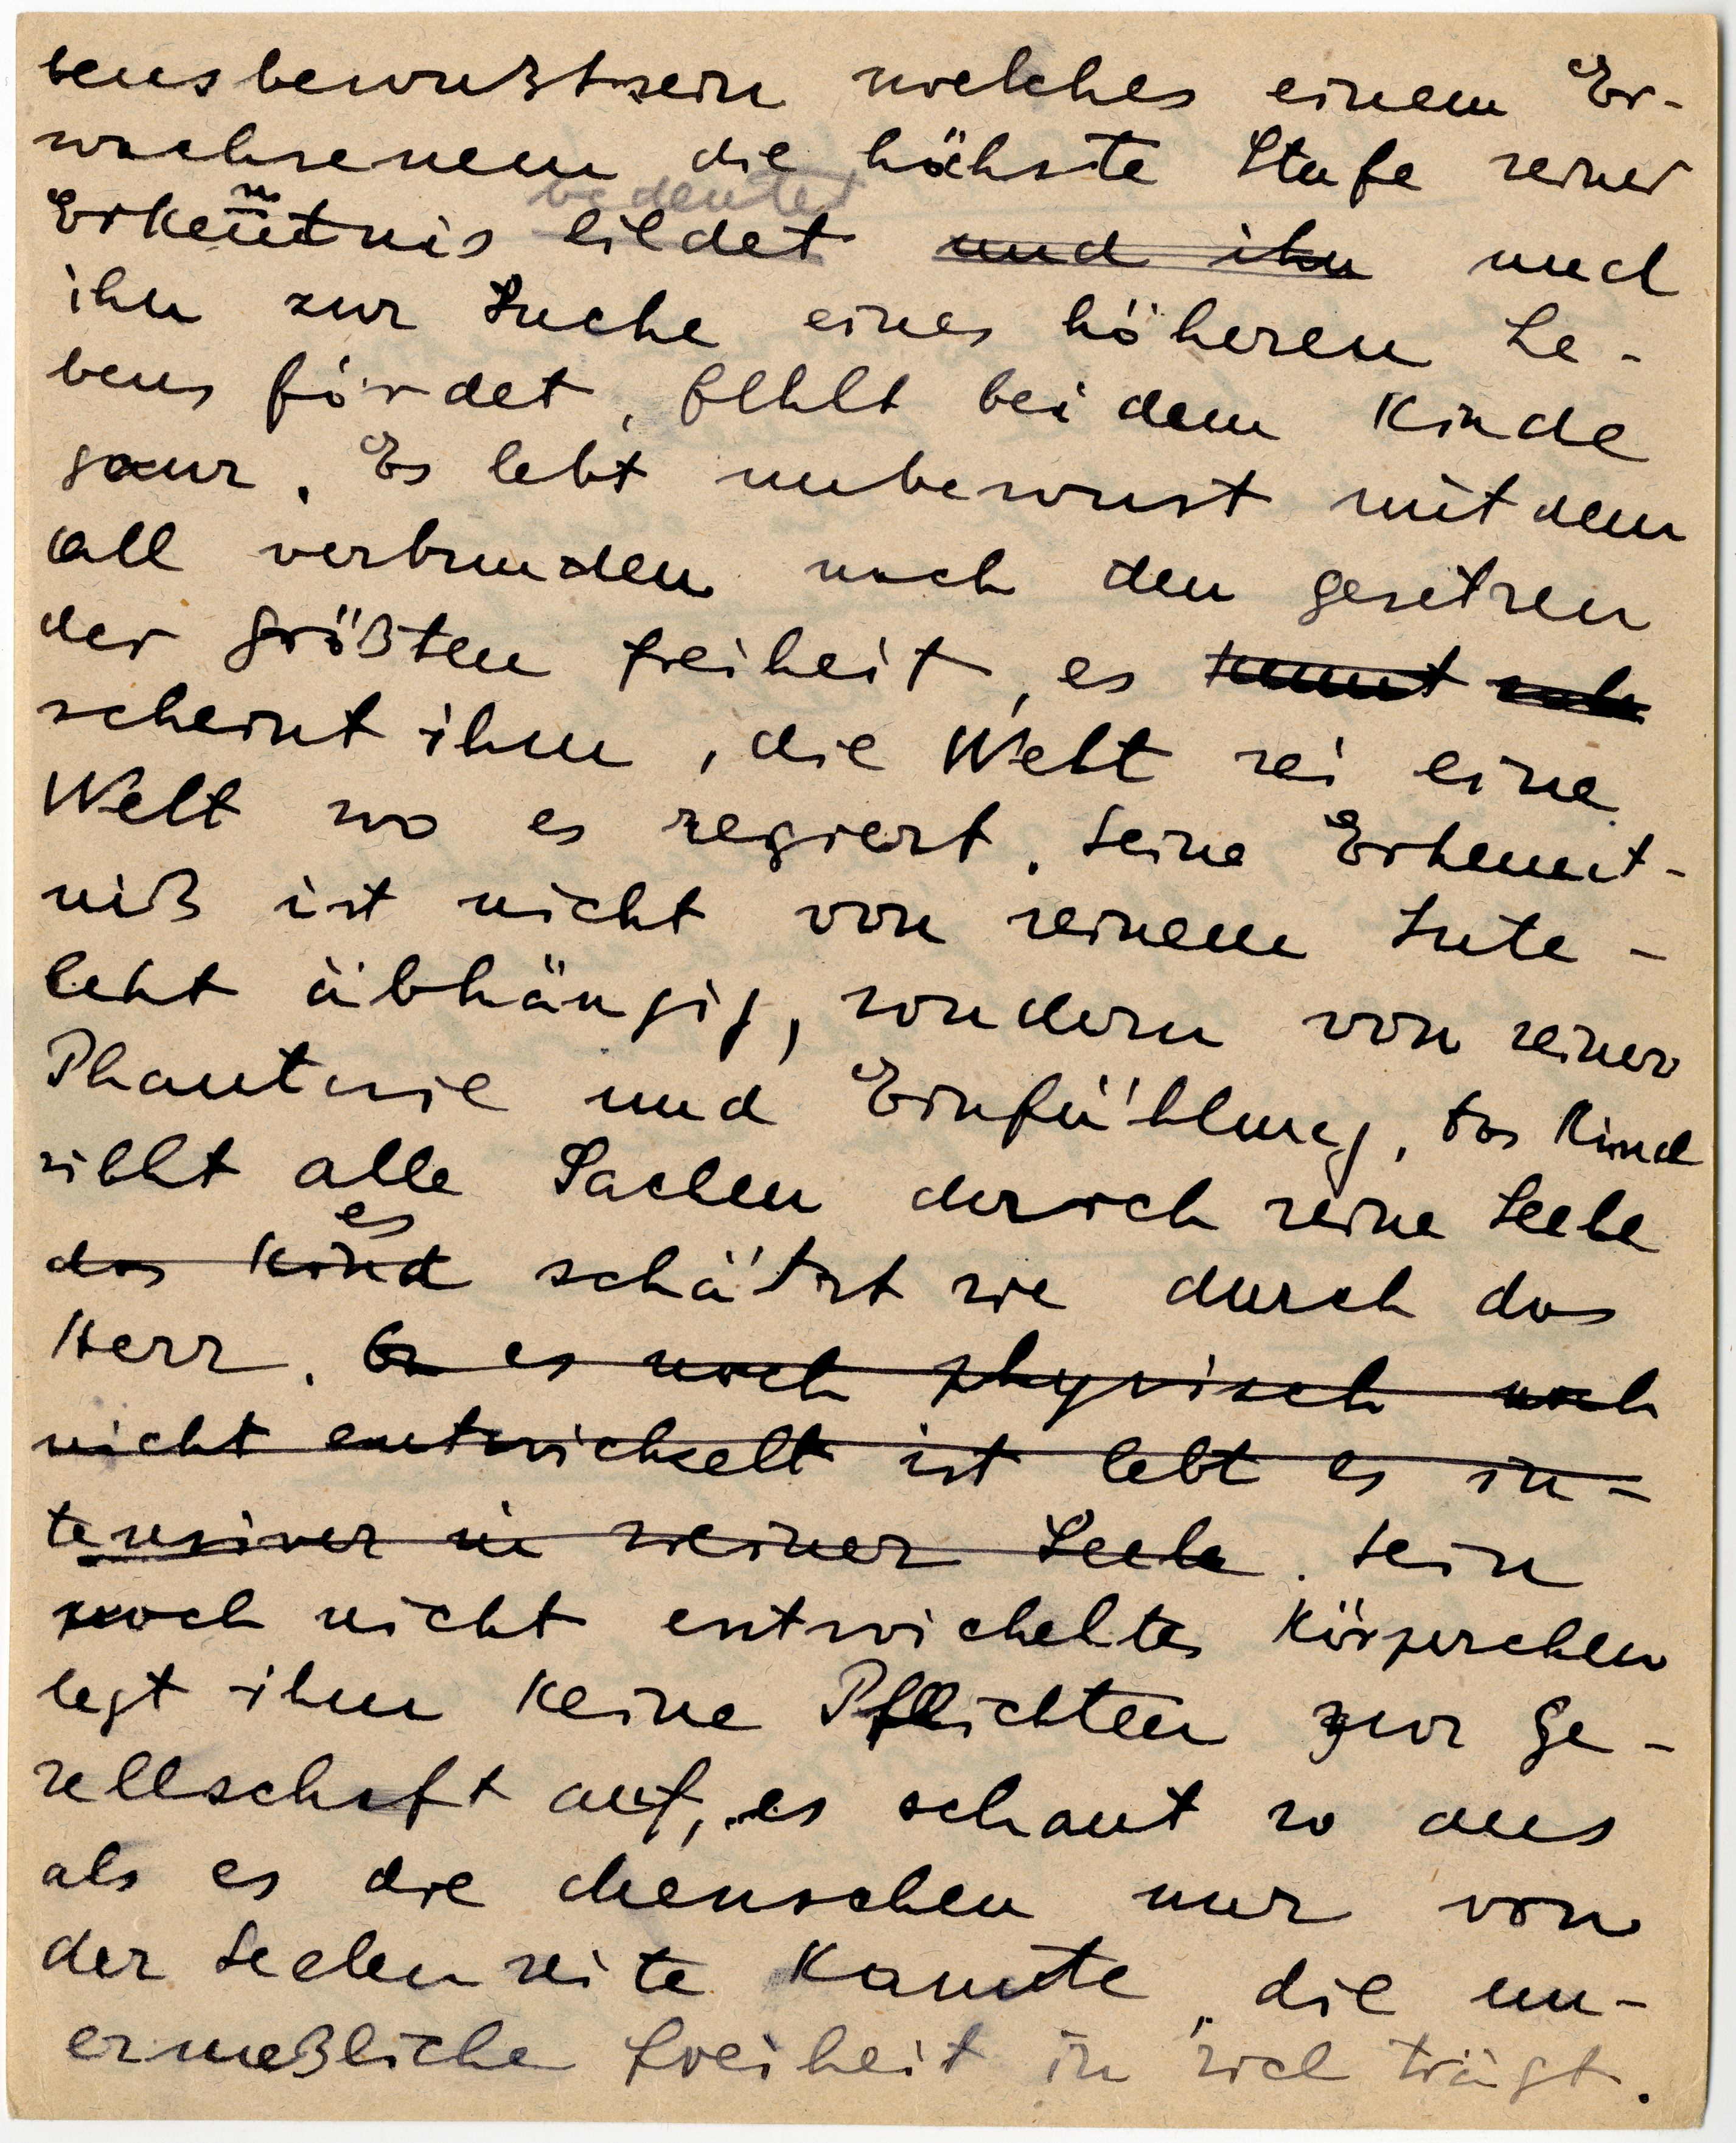 bensbewußtsein welches einem Er-
wachsenem die höchste Stufe seiner
bedeutet
Erkenntnis bildet und ihn und
ihn zur Suche eines höheren Le-
bens fördet, fehlt bei dem Kinde
ganz. Es lebt unbewust mit dem
all verbunden nach den gesetzen
der größten freiheit, es
scheint ihm, die Welt sei eine
Welt wo es regiert. Seine Erkennt-
niß ist nicht von seinem Inte-
lekt äbhängig, sondern von seiner
Phantasie und Einfühlung, das Kind
sieht alle Sachen durch seine Seele
es
das Kind schätzt sie durch das
Herz. Da es noch physisch noch
nicht entwickelt ist lebt es in-
tensiver in seiner Seele. Sein
noch nicht entwickeltes Körperchen
legt ihm keine Pflichten zur ge-
sellschaft auf, es schaut so aus
als es die Menschen nur von
der Seelenseite kannte, die un-
ermeßliche freiheit in sich trägt.